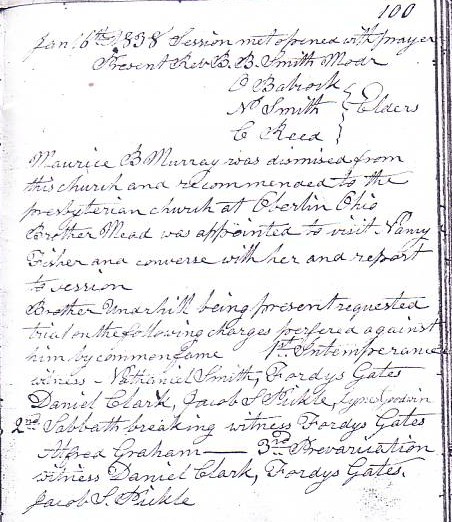 100
Jan. 6th 1838 Session met opened with prayer
Present Rev B. B. Smith Modr
O Babcock
Nl Smith Elders
C Reed
Maurice B Murray was dismised from
this church and recommended to the
presbyterian church at Oberlin Ohio
Brother Mead was appointed to visit Nancy
Fisher and converse with her and report
to session
Brother Underhill being present requested
trial on the following charges perfered against
him by common fame 1st Intemprerance
witness - Nathaniel Smith, Fordys Gates
Daniel Clark, Jacob S. Pickle, Goodwin
2nd Sabbath breaking witness Fordys Gates
Alfred Graham — 3rd Prevarication
witness Daniel Clark, Fordys Gates.
Jacob S. Pickle